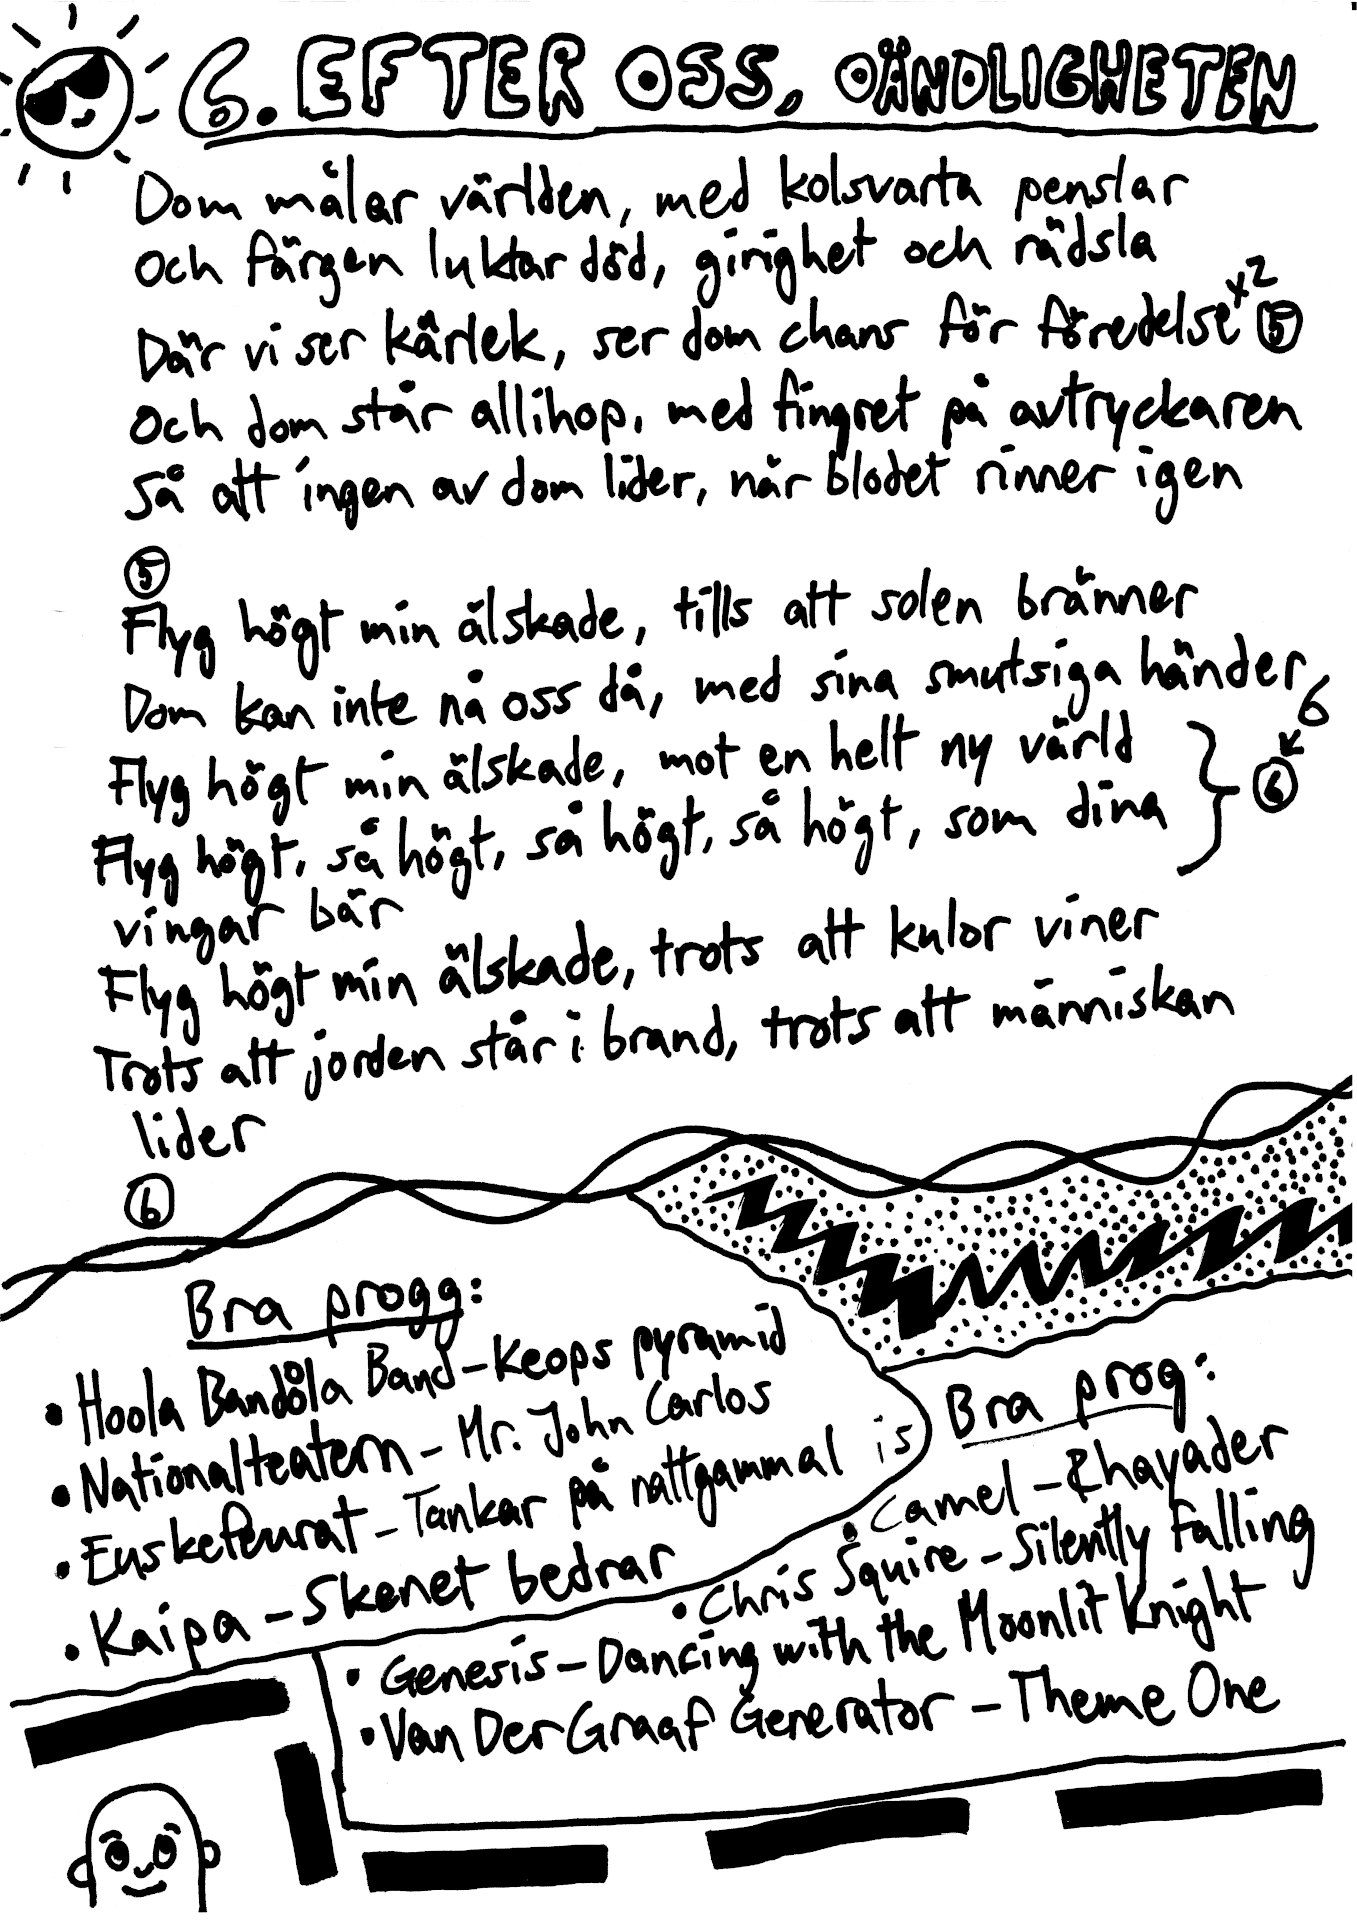 6. EFTER OSS, OÄNDLIGHETEN
Dom målar världen, med kolsvarta penslar
Och färgen luktar död, girighet och rädsla
Där vi ser kärlek, ser dom chans för föredelse x2 5
Och dom står allihop, med fingret på avtryckaren
Så att ingen av dom lider, når blodet rinner igen
5
Flyg högt min älskade, tills att solen bränner
Dom kan inte nå oss då, med sina smutsiga händer
Flyg högt min älskade, mot en helt ny värld
6
6
Flyg högt, så högt, så högt, så högt, som dina
vingar bär
Flyg högt min älskade, trots att kulor viner
Trots att jorden står i brand, trots att människan
lider
6
Bra progg:
• Hoola Bandöla Band – Keops pyramid
• Nationalteatern – Mr. John Carlos
• Euskefeurat – Tankar på nattgammal is
• Kaipa – Skenet bedrar
Bra prog:
• Camel – Rhayader
• Chris Squire – Silently Falling
• Genesis – Dancing with the Moonlit Knight
• Van Der Graaf Generator – Theme One